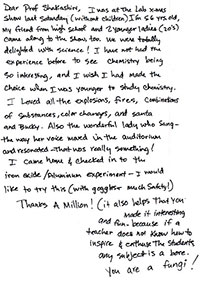 Dear Prof Shakashiri, I was at the Lab xmas
Show last Saturday (without children) I'm 56 yrs old,
my friend from high school and 2 younger ladies (20's)
came along to the show too. We were totally
delighted with science! I have not had the
experience before to see chemistry being
so interesting, and I wish I had made the
choice when I was younger to study chemistry.
I loved all the explosions, fires, combinations
of substances, color changes, and santa
and Bucky. Also the wonderful lady who sang -
the way her voice moved in the auditorium
and resonated - that was really something!
I came home & checked in to the
iron oxide/aluminum experiment - I would
like to try this (with goggles & much safety!)
Thanks A Million! (it also helps that you
made it interesting
and fun - because if a
teacher does not know how to
inspire & enthuse the students
any subject is a bore.
you are a fungi!